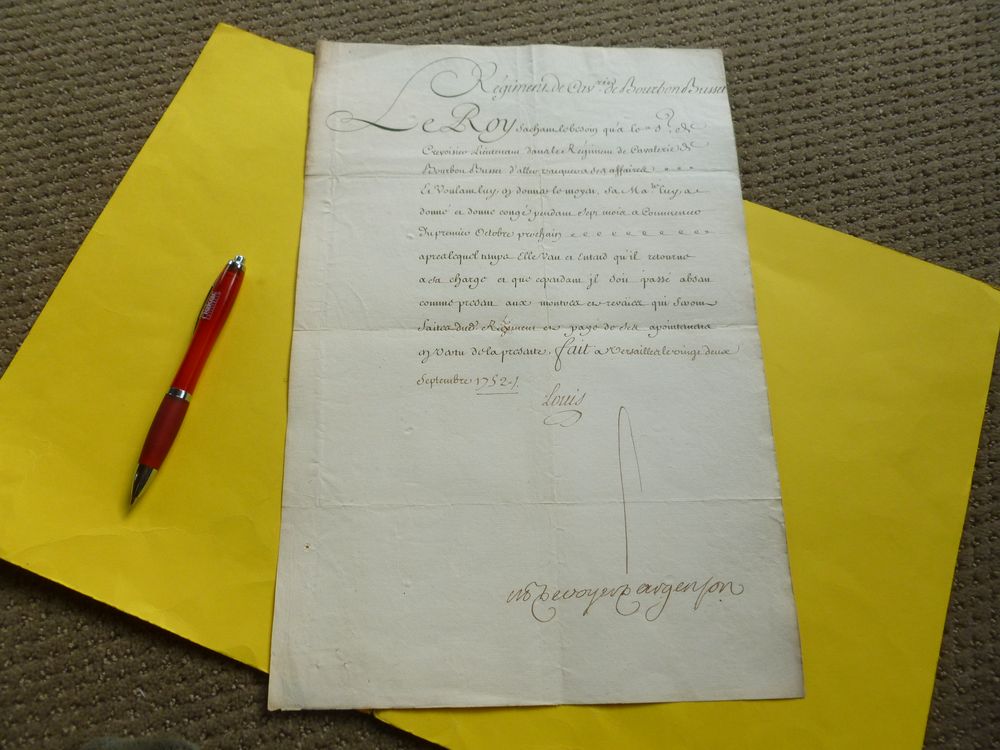 Régiment de Cav.rie de Bourbon Busset
Le Roy sachant le besoin qu'a le Sr. de
Crevoisier Lieutenant dans le Régiment de Cavalerie de
Bourbon Busset d'aller vaquer a ses affaires
Et Voulant luy en donner le moyen, sa Ma.té luy a
donné et donne congé pendant sept mois a Commencer
Du premier Octobre prochain
apres lequel temps Elle Veut et Entend qu'il retourne
a sa charge et que cependant jl soit passé absent
comme present aux montres et revües qui seront
faites dud. Régiment et payé de ses apointemens
en Vertu de la presente, fait a Versailles le vingt deux
Septembre 1752./.
Louis
M P de voyer d'argenson